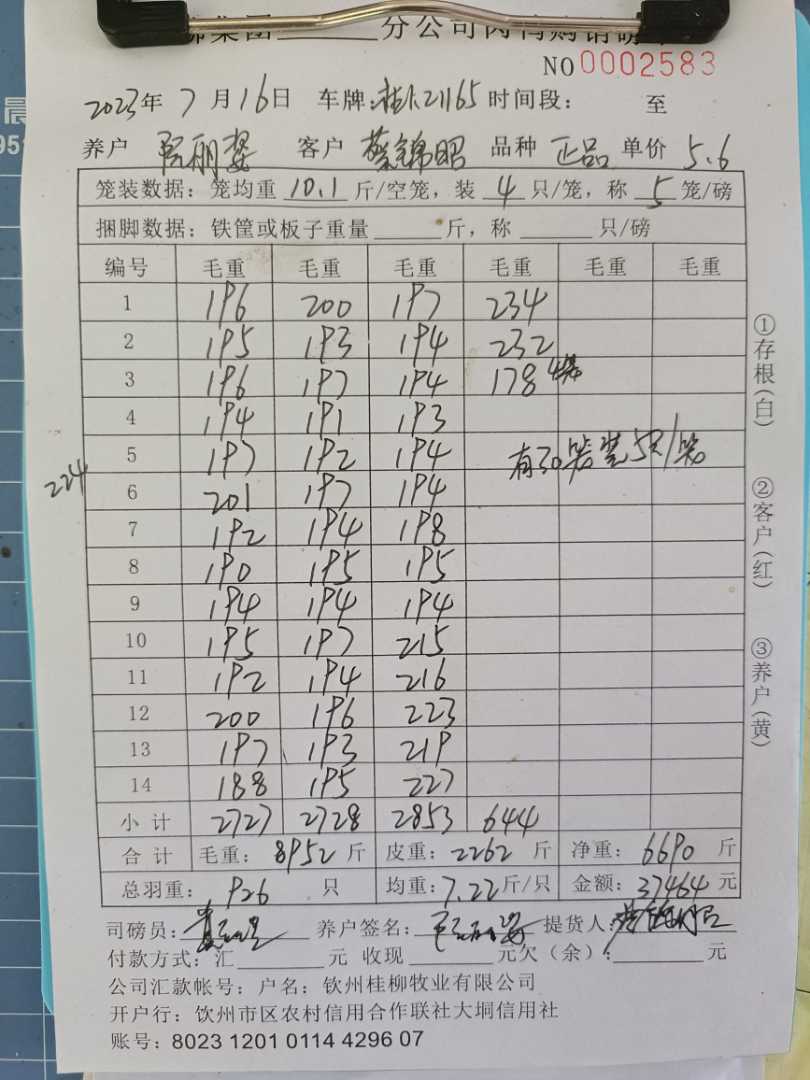 分公司肉鸭购销明
NO 0002583
2023年 7月 16日 车牌:桂K21165 时间段: 至
养户 客户 蔡锦昭 品种 正品 单价 5.6
笼装数据: 笼均重 10.1 斤/空笼, 装 4 只/笼, 称 5 笼/磅
捆脚数据: 铁筐或板子重量 斤, 称 只/磅
编号 毛重 毛重 毛重 毛重 毛重 毛重
1 196 200 197 234
2 195 193 194 232
3 196 197 194 178 4笼
4 194 191 193
5 197 192 194 有30笼装5只/笼
224
6 201 197 194
7 192 194 198
8 190 195 195
9 194 194 194
10 195 197 215
11 192 194 216
12 200 196 223
13 197 193 219
14 188 195 227
小计 2727 2728 2853 644
合计 毛重: 8952 斤 皮重: 2262 斤 净重: 6690 斤
总羽重: 926 只 均重: 7.22 斤/只 金额: 37464 元
司磅员: 养户签名: 提货人: 蔡锦昭
付款方式: 汇 元 收现 元欠(余): 元
公司汇款帐号: 户名: 钦州桂柳牧业有限公司
开户行: 钦州市区农村信用合作联社大垌信用社
账号: 8023 1201 0114 4296 07
①存根(白)
②客户(红)
③养户(黄)